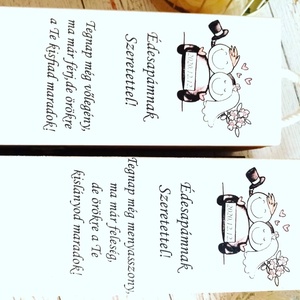 Édesapámnak
Szeretettel!
Tegnap még vőlegény,
ma már férj, de örökre
a Te kisfiad maradok!
Édesapámnak
Szeretettel!
Tegnap még menyasszony,
ma már feleség,
de örökre a Te
kislányod maradok!